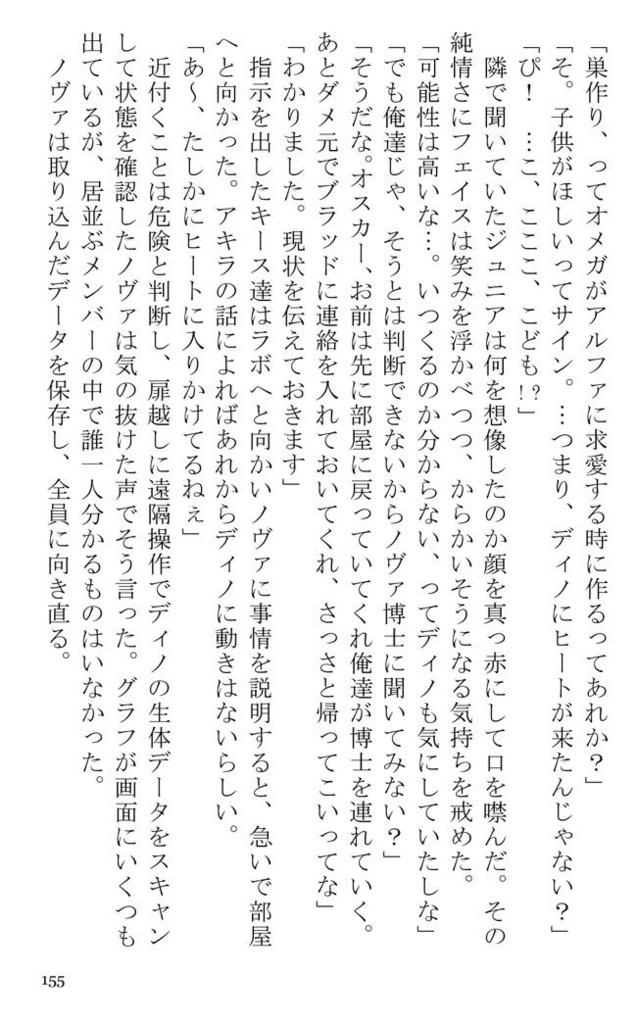 「巣作り、ってオメガがアルファに求愛する時に作るってあれか？」
「そ。子供がほしいってサイン。…つまり、ディノにヒートが来たんじゃない？」
「ぴ！　…こ、こここ、こども！？」
　隣で聞いていたジュニアは何を想像したのか顔を真っ赤にして口を噤んだ。その
純情さにフェイスは笑みを浮かべつつ、からかいそうになる気持ちを戒めた。
「可能性は高いな…。いつくるのか分からない、ってディノも気にしていたしな」
「でも俺達じゃ、そうとは判断できないからノヴァ博士に聞いてみない？」
「そうだな。オスカー、お前は先に部屋に戻っていてくれ俺達が博士を連れていく。
あとダメ元でブラッドに連絡を入れておいてくれ、さっさと帰ってこいってな」
「わかりました。現状を伝えておきます」
　指示を出したキース達はラボへと向かいノヴァに事情を説明すると、急いで部屋
へと向かった。アキラの話によればあれからディノに動きはないらしい。
「あ～、たしかにヒートに入りかけてるねぇ」
　近付くことは危険と判断し、扉越しに遠隔操作でディノの生体データをスキャン
して状態を確認したノヴァは気の抜けた声でそう言った。グラフが画面にいくつも
出ているが、居並ぶメンバーの中で誰一人分かるものはいなかった。
　ノヴァは取り込んだデータを保存し、全員に向き直る。
155